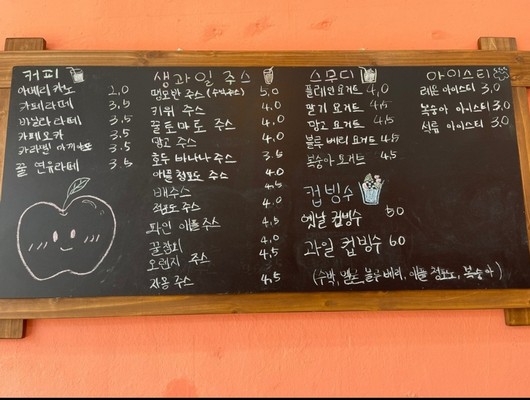 커피
아메리카노 2,0
카페라떼 3.5
바닐라라떼 3.5
카페모카 3.5
카라멜 마끼아또 3.5
꿀 연유라떼 3.5
생과일 주스
땡모반 주스 (수박주스) 5,0
키위 주스 4.0
꿀토마토 주스 4.0
망고 주스 4.0
호두 바나나 주스 3.5
아몬 청포도 주스 4.0
배주스 4.5
청포도 주스 4.0
파인애플 주스 4.5
꿀참외 4.0
오렌지 주스 4.5
자몽 주스 4,5
스무디
플레인 요거트 4,0
딸기 요거트 4.5
망고 요거트 4.5
블루베리 요거트 4.5
복숭아 요거트 4.5
컵빙수
옛날 컵빙수 50
과일 컵빙수 60
(수박, 멜론, 블루베리, 애플 청포도, 복숭아)
아이스티
레몬 아이스티 3,0
복숭아 아이스티 3.0
석류 아이스티 3.0